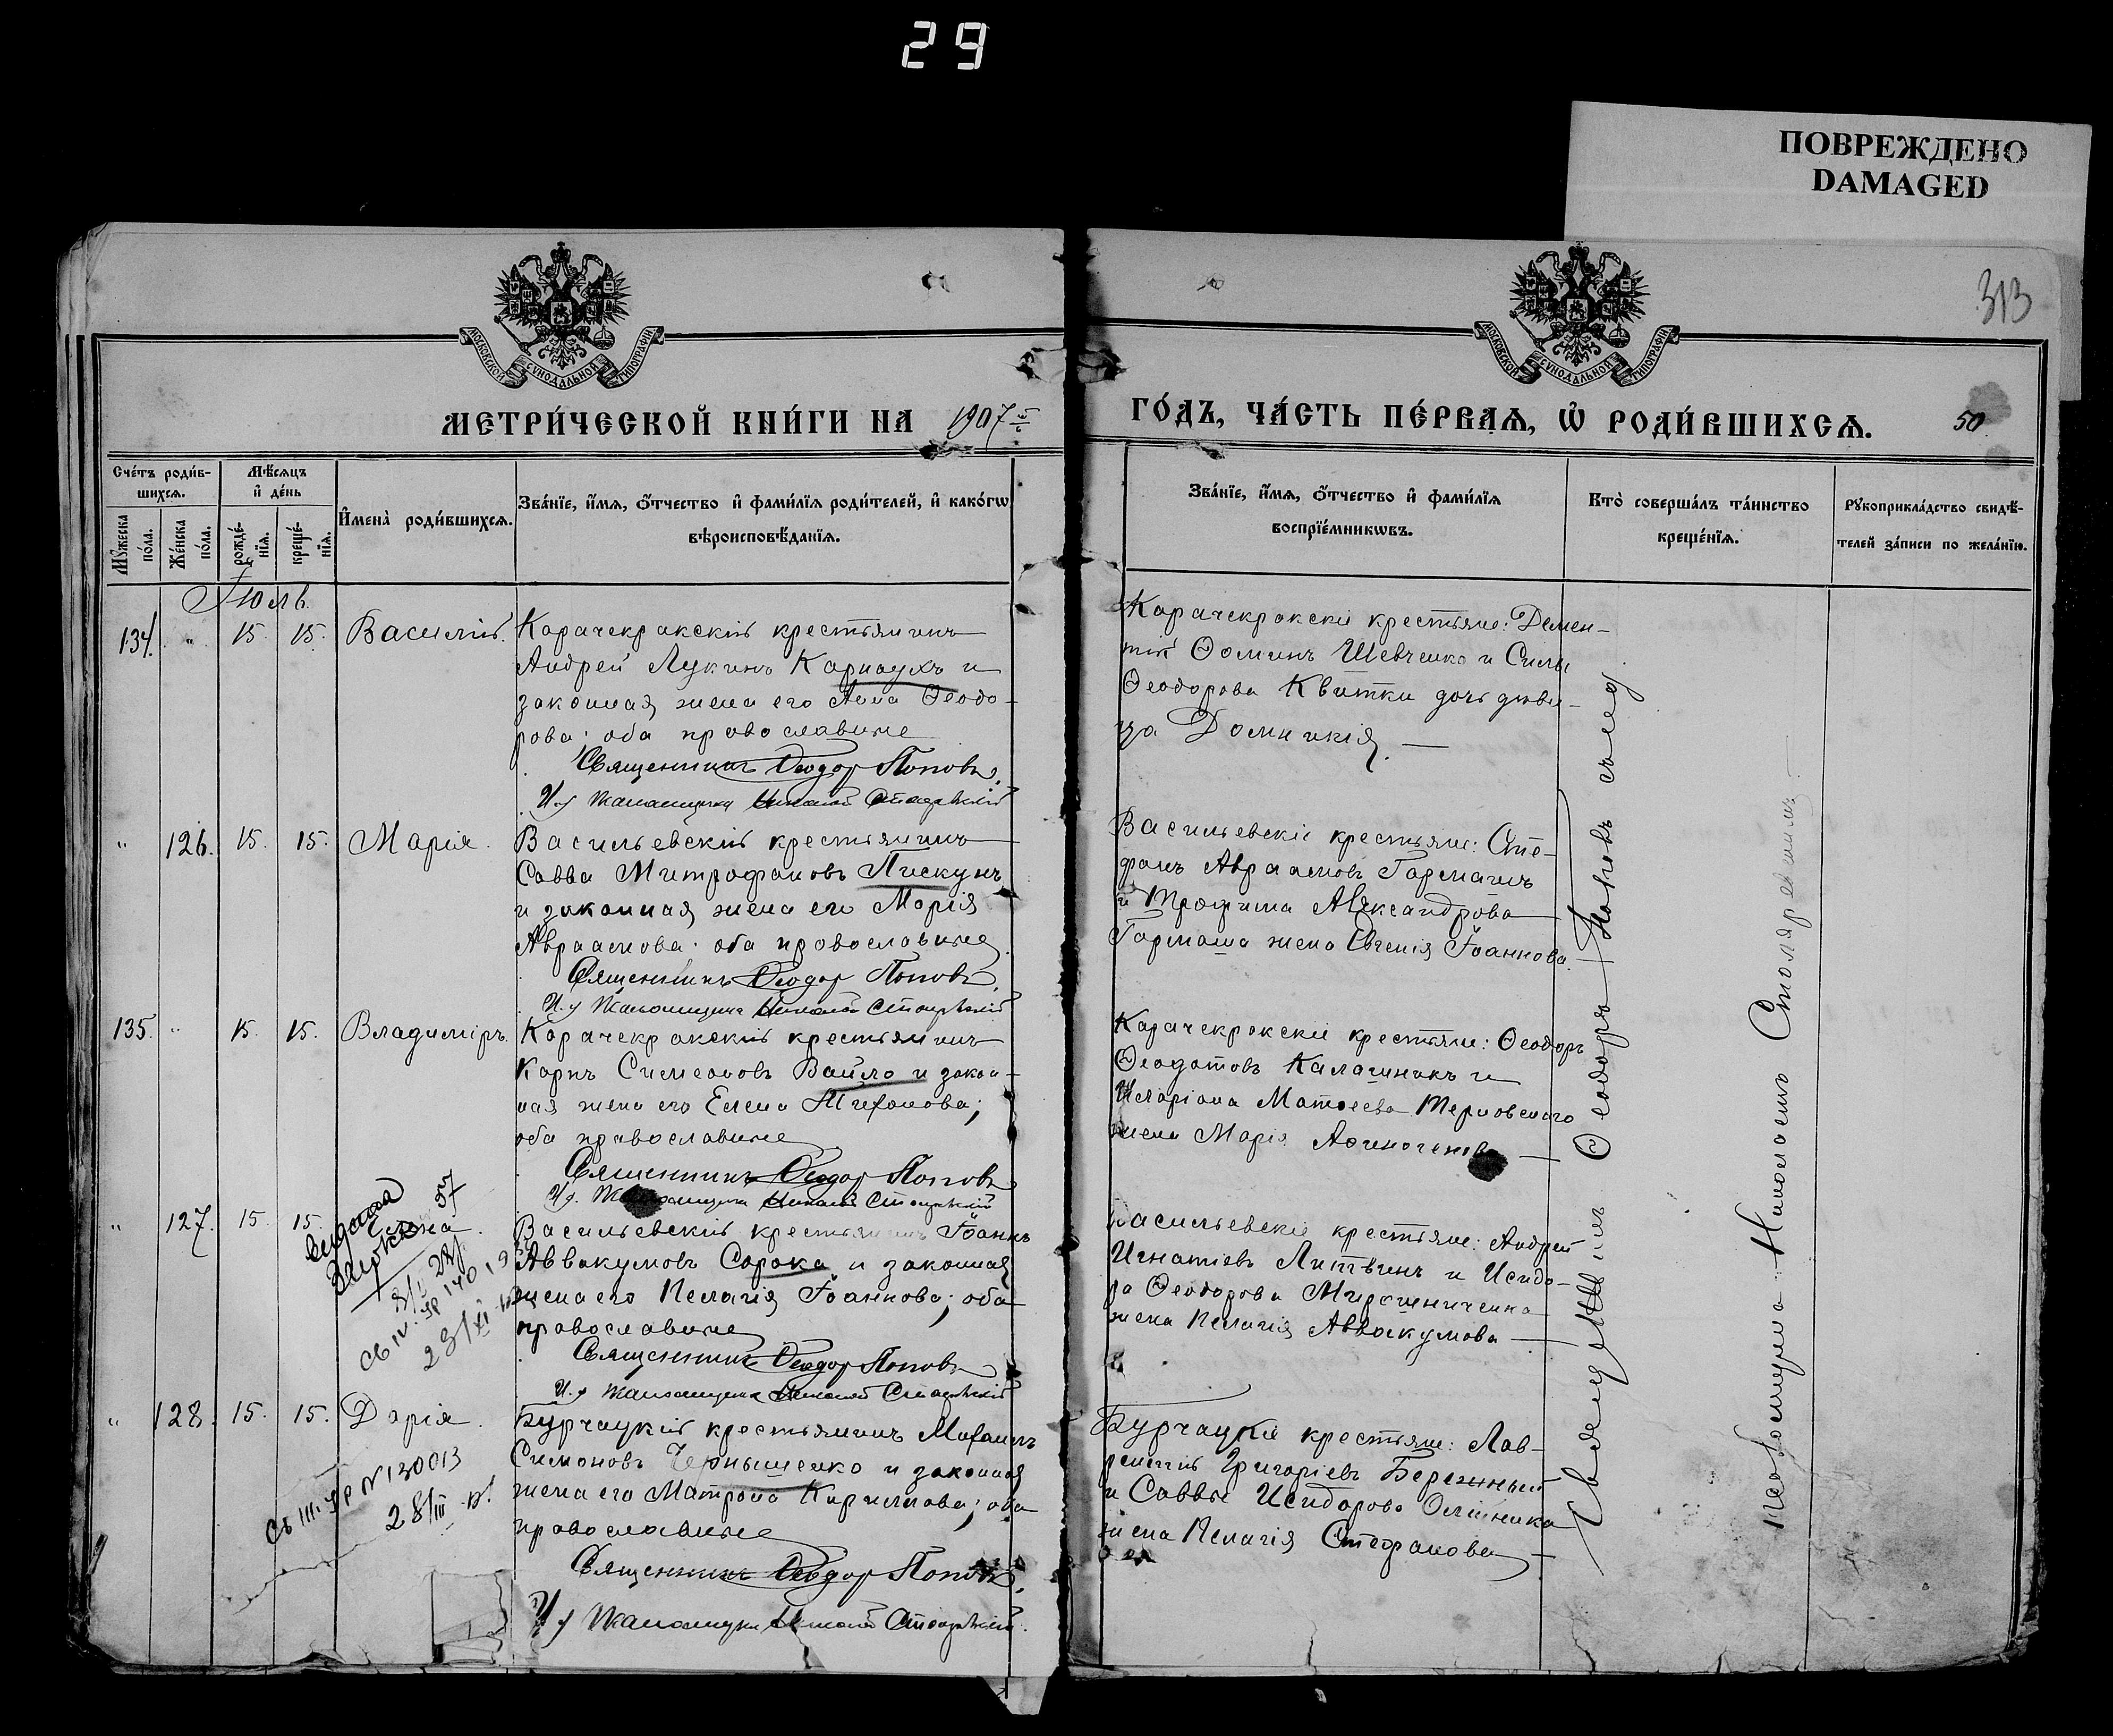 29
ПОВРЕЖДЕНО
DAMAGED
313
МОСКОВСКОЙ СѴНОДАЛЬНОЙ ТИПОГРАФІИ
МОСКОВСКОЙ СѴНОДАЛЬНОЙ ТИПОГРАФІИ
МЕТРИ́ЧЕСКОЙ КНИ́ГИ НА 1907
ГО́ДЪ, ЧА́СТЬ ПЕ́РВАѦ, Ѡ҆ РОДИ́ВШИХСѦ. 50
Сче́тъ роди́в-
шихсѧ.
Мꙋ́жеска по́ла.
Же́нска по́ла.
Мѣ́сѧцъ
и҆ де́нь
рожде́-
нїѧ.
креще́-
нїѧ.
И҆мена̀ роди́вшихсѧ.
Зва́нїе, и҆́мѧ, ѻ҆́тчество и҆ фами́лїѧ роди́телей, и҆ како́гѡ
вѣроисповѣ́данїѧ.
Зва́нїе, и҆́мѧ, ѻ҆́тчество и҆ фами́лїѧ
воспрїе́мникѡвъ.
Кто̀ соверша́лъ та́инство
креще́нїѧ.
Рꙋкоприкла́дство свидѣ́-
телей за́писи по жела́нїю.
Іюль.
134. " 15. 15. Василій.
Карачекракскій крестьянинъ
Андрей Лукинъ Карнаухъ и
законная жена его Анна Ѳеодо-
рова; оба православные
Священникъ Ѳеодор Поповъ.
И. д. Псаломщика Николай
Карачекракскіе крестьяне: Демен-
тій Ѳоминъ Шевченко и Силы
Ѳеодорова Квитки дочь дѣви-
ца Домникія. —
" 126. 15. 15. Марія.
Васильевскій крестьянинъ
Савва Митрофановъ Пискунъ
и законная жена его Марія
Авраамова; оба православные.
Священникъ Ѳеодор Поповъ.
И. д. Псаломщика Николай
Васильевскіе крестьяне: Сте-
фанъ Авраамовъ Гармашъ
и Трофима Александрова
Гармаша жена Евгенія Іоаннова.
135. " 15. 15. Владиміръ.
Карачекракскій крестьянинъ
Карпъ Симеоновъ Вайло и закон-
ная жена его Елена Тифонова;
оба православные
Священникъ Ѳеодор Поповъ
И. д. Псаломщика Николай
Карачекракскіе крестьяне: Ѳеодоръ
Ѳеодотовъ Калашникъ и
Иларіона Матѳеева Терновского
жена Марія Аѳиногенова —
" 127. 15. 15. Елена.
Выдана
Васильевскій крестьянинъ Іоаннъ
Аввакумовъ Сорока и законная
жена его Пелагія Іоаннова; оба
православные
Священникъ Ѳеодор Поповъ
И. д. Псаломщика Николай
Васильевскіе крестьяне: Андрей
Игнатіевъ Литвинъ и Исидо-
ра Ѳеодорова Мирошниченка
жена Пелагія Аввакумова —
" 128. 15. 15. Дарія.
Св III. УР №130013
28/III
Бурчацкій крестьянинъ Михаилъ
Симоновъ Чернышенко и законная
жена его Матрона Кириллова; оба
православные
Священникъ Ѳеодор Поповъ.
И. д. Псаломщика Николай
Бурчацкіе крестьяне: Лав-
рентій Григоріевъ Бережный
и Саввы Исидорова Олійника
жена Пелагія Стефанова —
Священникъ Ѳеодоръ Поповъ съ и. д.
псаломщика Николаемъ Столяревскимъ